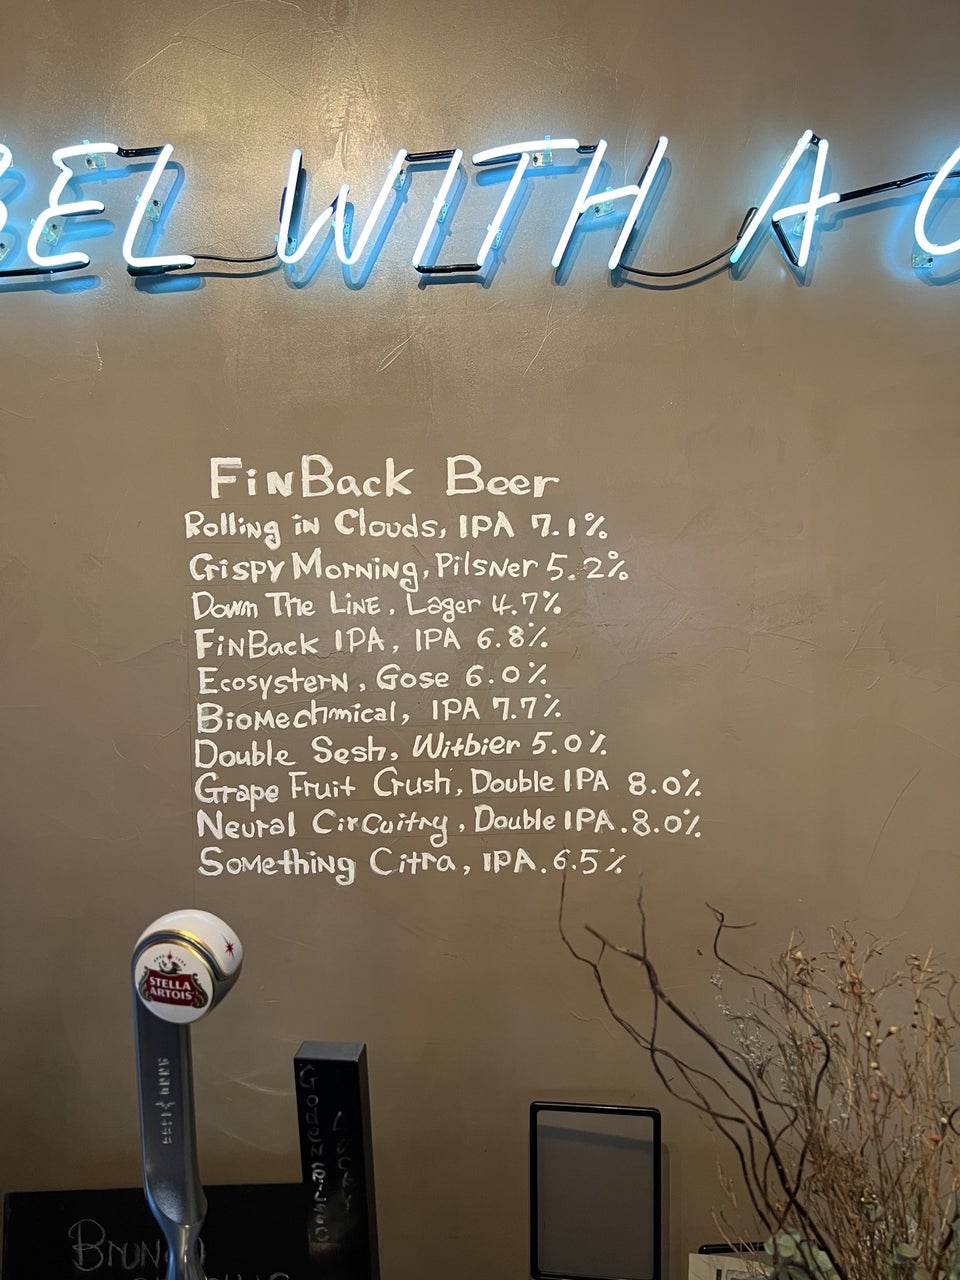 BEL WITH A C
FinBack Beer
Rolling in Clouds, IPA 7.1%
Crispy Morning, Pilsner 5.2%
Down The Line, Lager 4.7%
FinBack IPA, IPA 6.8%
Ecosystern, Gose 6.0%
Biomechmical, IPA 7.7%
Double Sesh, Witbier 5.0%
Grape Fruit Crush, Double IPA 8.0%
Neural Circuitry, Double IPA. 8.0%
Something Citra, IPA. 6.5%
STELLA
ARTOIS